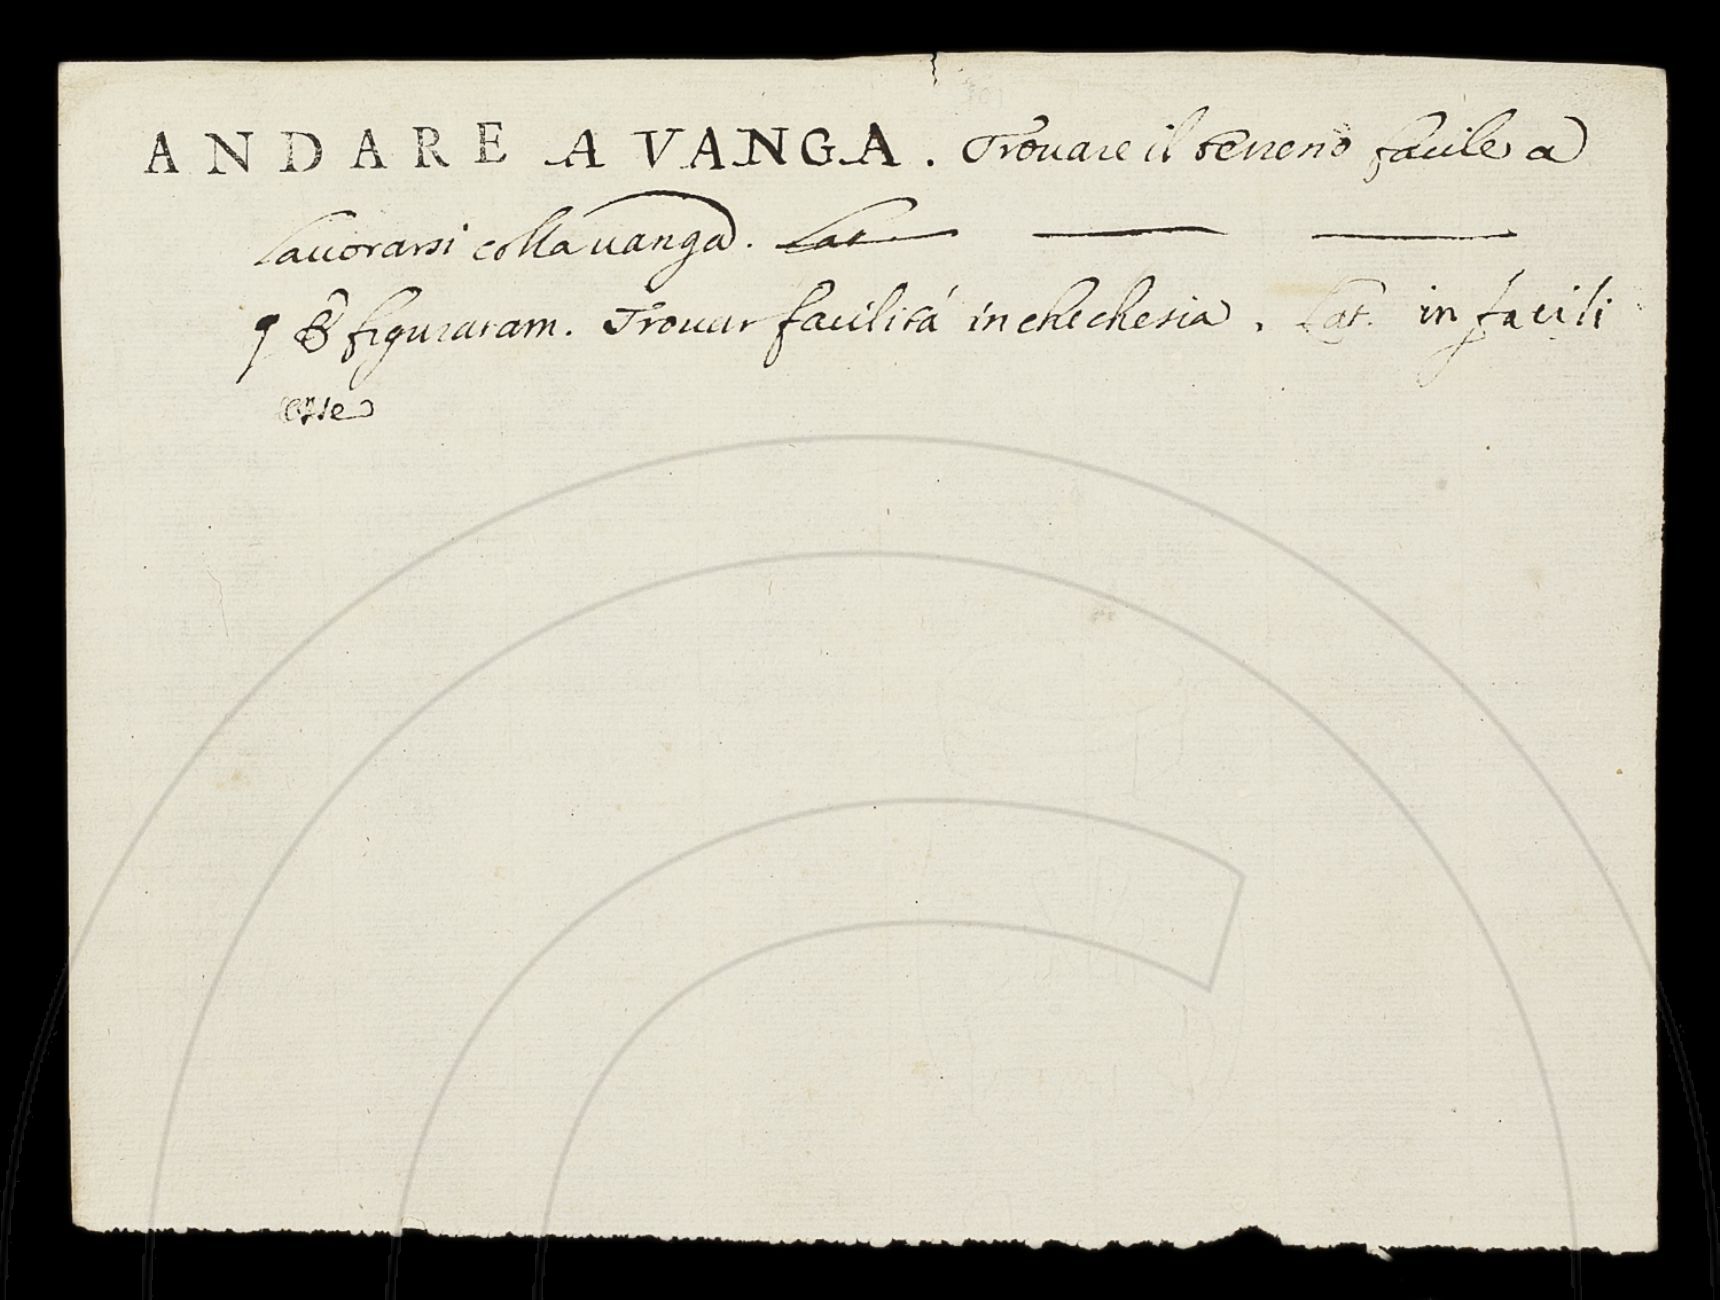 ANDARE A VANGA. Trouare il terreno facile a
lauorarsi colla uanga. Lat.
¶ & figuraram. Trouar facilitá in chechesia. Lat. in facili
esse